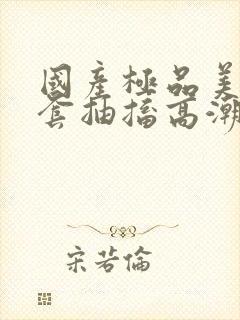 國產極品美
套抽搐高潮
宋若倫